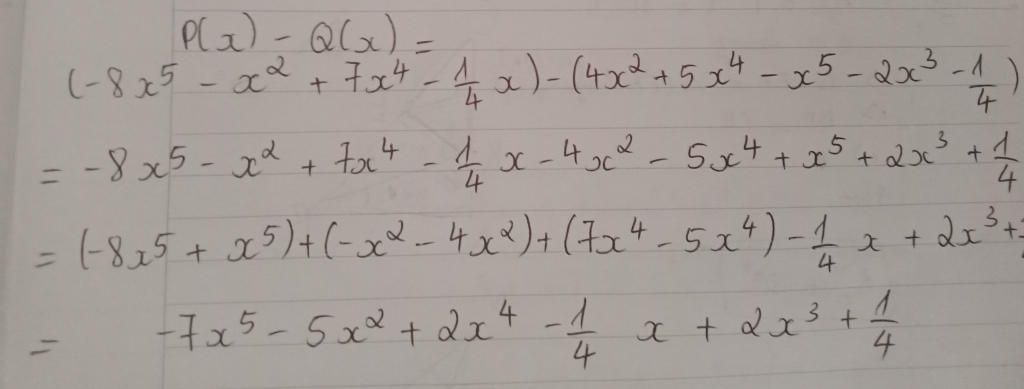 P(x) - Q(x) =
(-8x⁵ - x² + 7x⁴ - 1/4 x) - (4x² + 5x⁴ - x⁵ - 2x³ - 1/4)
= -8x⁵ - x² + 7x⁴ - 1/4 x - 4x² - 5x⁴ + x⁵ + 2x³ + 1/4
= (-8x⁵ + x⁵) + (-x² - 4x²) + (7x⁴ - 5x⁴) - 1/4 x + 2x³ +
= -7x⁵ - 5x² + 2x⁴ - 1/4 x + 2x³ + 1/4